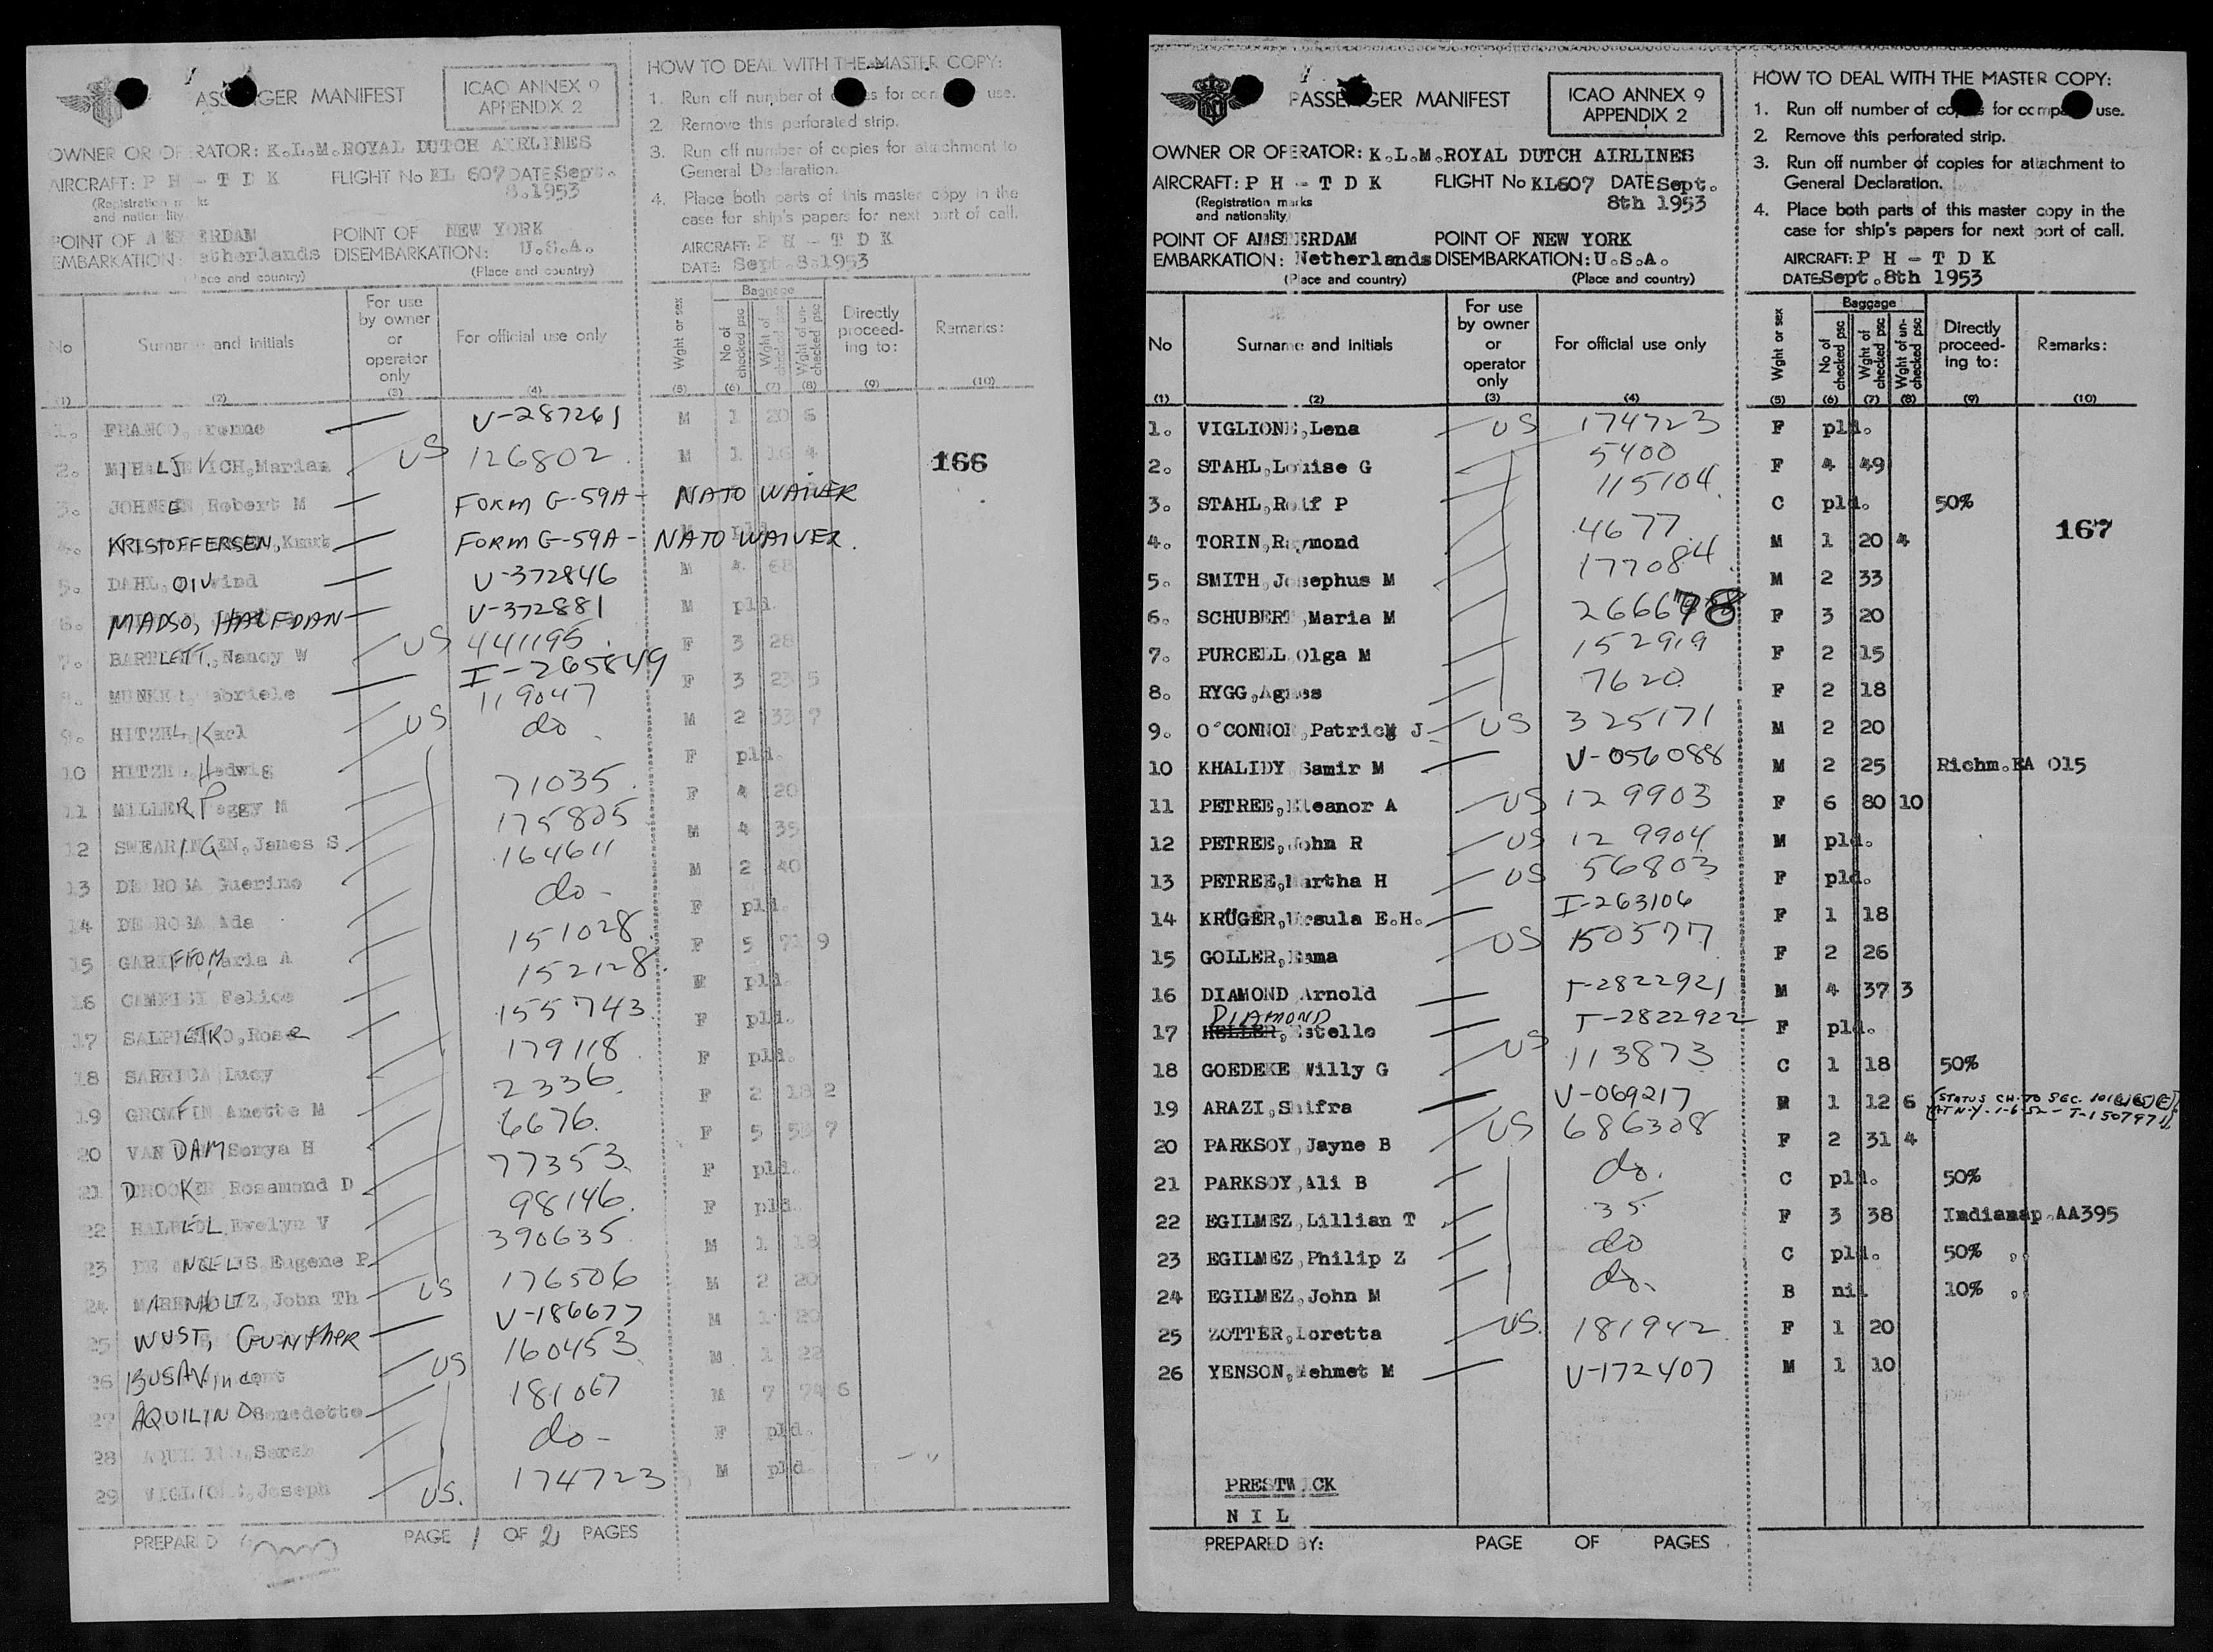 PASSENGER MANIFEST
ICAO ANNEX 9
APPENDIX 2
OWNER OR OPERATOR: K.L.M. ROYAL DUTCH AIRLINES
AIRCRAFT: P H - T D K FLIGHT No KL 607 DATE Sept.
8.1953
(Registration marks
and nationality)
POINT OF AMSTERDAM POINT OF NEW YORK
EMBARKATION: Netherlands DISEMBARKATION: U.S.A.
(Place and country) (Place and country)
HOW TO DEAL WITH THE MASTER COPY:
1. Run off number of copies for company use.
2. Remove this perforated strip.
3. Run off number of copies for attachment to
General Declaration.
4. Place both parts of this master copy in the
case for ship's papers for next port of call.
AIRCRAFT: P H - T D K
DATE: Sept. 8.1953
No Surname and Initials For use by owner or operator only For official use only Wght or sex Baggage No of checked psc Wght of checked psc Wght of un-checked psc Directly proceed-ing to: Remarks:
(1) (2) (3) (4) (5) (6) (7) (8) (9) (10)
1. FRANCO, — V-287261 M 1 20 6
2. MIHALJEVICH, Marian US 126802 M 1 16 4
166
3. JOHNSEN, Robert M — FORM G-59A - NATO WAIVER
4. KRISTOFFERSEN, Knut — FORM G-59A - NATO WAIVER.
5. DAHL, OIVind — V-372846 M 4 68
6. MADSO, HALFDAN — V-372881 M pld.
7. BARTLETT, Nancy W US 441195 F 3 28
8. Gabriele — I-265849 F 3 23 5
9. HITZEL, Karl US 119047 M 2 33 7
10 HITZEL, Hedwig do F pld.
11 MILLER Peggy M 71035 F 4 20
12 SWEARINGEN, James S 175805 M 4 35
13 DE ROSA Guerino 164611 M 2 40
14 DE ROSA Ada do - F pld.
15 GARIFFO, Maria A 151028 F 5 71 9
16 CAMPISI Felice 152128 M pld.
17 SALPIETRO, Rose 155743 F pld.
18 SARRICA Lucy 179118 F pld.
19 GROMFIN Anette M 2336 F 2 18 2
20 VAN DAM Sonya H 6676 F 5 55 7
21 Rosamond D 77353 F pld.
22 Evelyn V 98146 F pld.
23 DE ANGELIS, Eugene P 390635 M 1 18
24 MARENHOLTZ, John Th US 176506 M 2 20
25 WUST, GUNTHER — V-186677 M 1 20
26 BUSA Vincent US 160453 M 1 22
27 AQUILINO Benedetto 181067 M 7 74 6
28 AQUILINO, Sarah do - F pld.
29 VIGLIONE, Joseph US. 174723 M pld.
PREPARED PAGE 1 OF 2 PAGES
PASSENGER MANIFEST
ICAO ANNEX 9
APPENDIX 2
OWNER OR OPERATOR: K.L.M. ROYAL DUTCH AIRLINES
AIRCRAFT: P H - T D K FLIGHT No KL607 DATE Sept.
8th 1953
(Registration marks
and nationality)
POINT OF AMSTERDAM POINT OF NEW YORK
EMBARKATION: Netherlands DISEMBARKATION: U.S.A.
(Place and country) (Place and country)
HOW TO DEAL WITH THE MASTER COPY:
1. Run off number of copies for company use.
2. Remove this perforated strip.
3. Run off number of copies for attachment to
General Declaration.
4. Place both parts of this master copy in the
case for ship's papers for next port of call.
AIRCRAFT: P H - T D K
DATE: Sept. 8th 1953
No Surname and Initials For use by owner or operator only For official use only Wght or sex Baggage No of checked psc Wght of checked psc Wght of un-checked psc Directly proceed-ing to: Remarks:
(1) (2) (3) (4) (5) (6) (7) (8) (9) (10)
1. VIGLIONE, Lena US 174723 F pld.
2. STAHL, Louise G 5400 F 4 49
3. STAHL, Rolf P 115104 C pld. 50%
167
4. TORIN, Raymond 4677 M 1 20 4
5. SMITH, Josephus M 177084 M 2 33
6. SCHUBERT, Maria M 266678 F 3 20
7. PURCELL Olga M 152919 F 2 15
8. RYGG, Agnes 7620 F 2 18
9. O'CONNOR, Patrick J US 325171 M 2 20
10 KHALIDY Samir M — V-056088 M 2 25 Richm. EA 015
11 PETREE, Eleanor A US 129903 F 6 80 10
12 PETREE, John R US 129904 M pld.
13 PETREE, Martha H US 56803 F pld.
14 KRÜGER, Ursula E.H. — I-263106 F 1 18
15 GOLLER, Emma US 150577 F 2 26
16 DIAMOND Arnold — T-2822921 M 4 37 3
DIAMOND
17 HELLER, Estelle T-2822922 F pld.
18 GOEDEKE Willy G US 113873 C 1 18 50%
19 ARAZI, Shifra — V-069217 1 12 6 STATUS CH. TO SEC. AT N.Y. 1-6-52 - T-1507971
20 PARKSOY, Jayne B US 686308 F 2 31 4
21 PARKSOY, Ali B do. C pld. 50%
22 EGILMEZ, Lillian T 35 F 3 38 Indianap. AA395
23 EGILMEZ, Philip Z do C pld. 50% ,,
24 EGILMEZ, John M do. B nil 10% ,,
25 ZOTTER, Loretta US. 181942 F 1 20
26 YENSON, Mehmet M — V-172407 M 1 10
PRESTWICK
N I L
PREPARED BY: PAGE OF PAGES